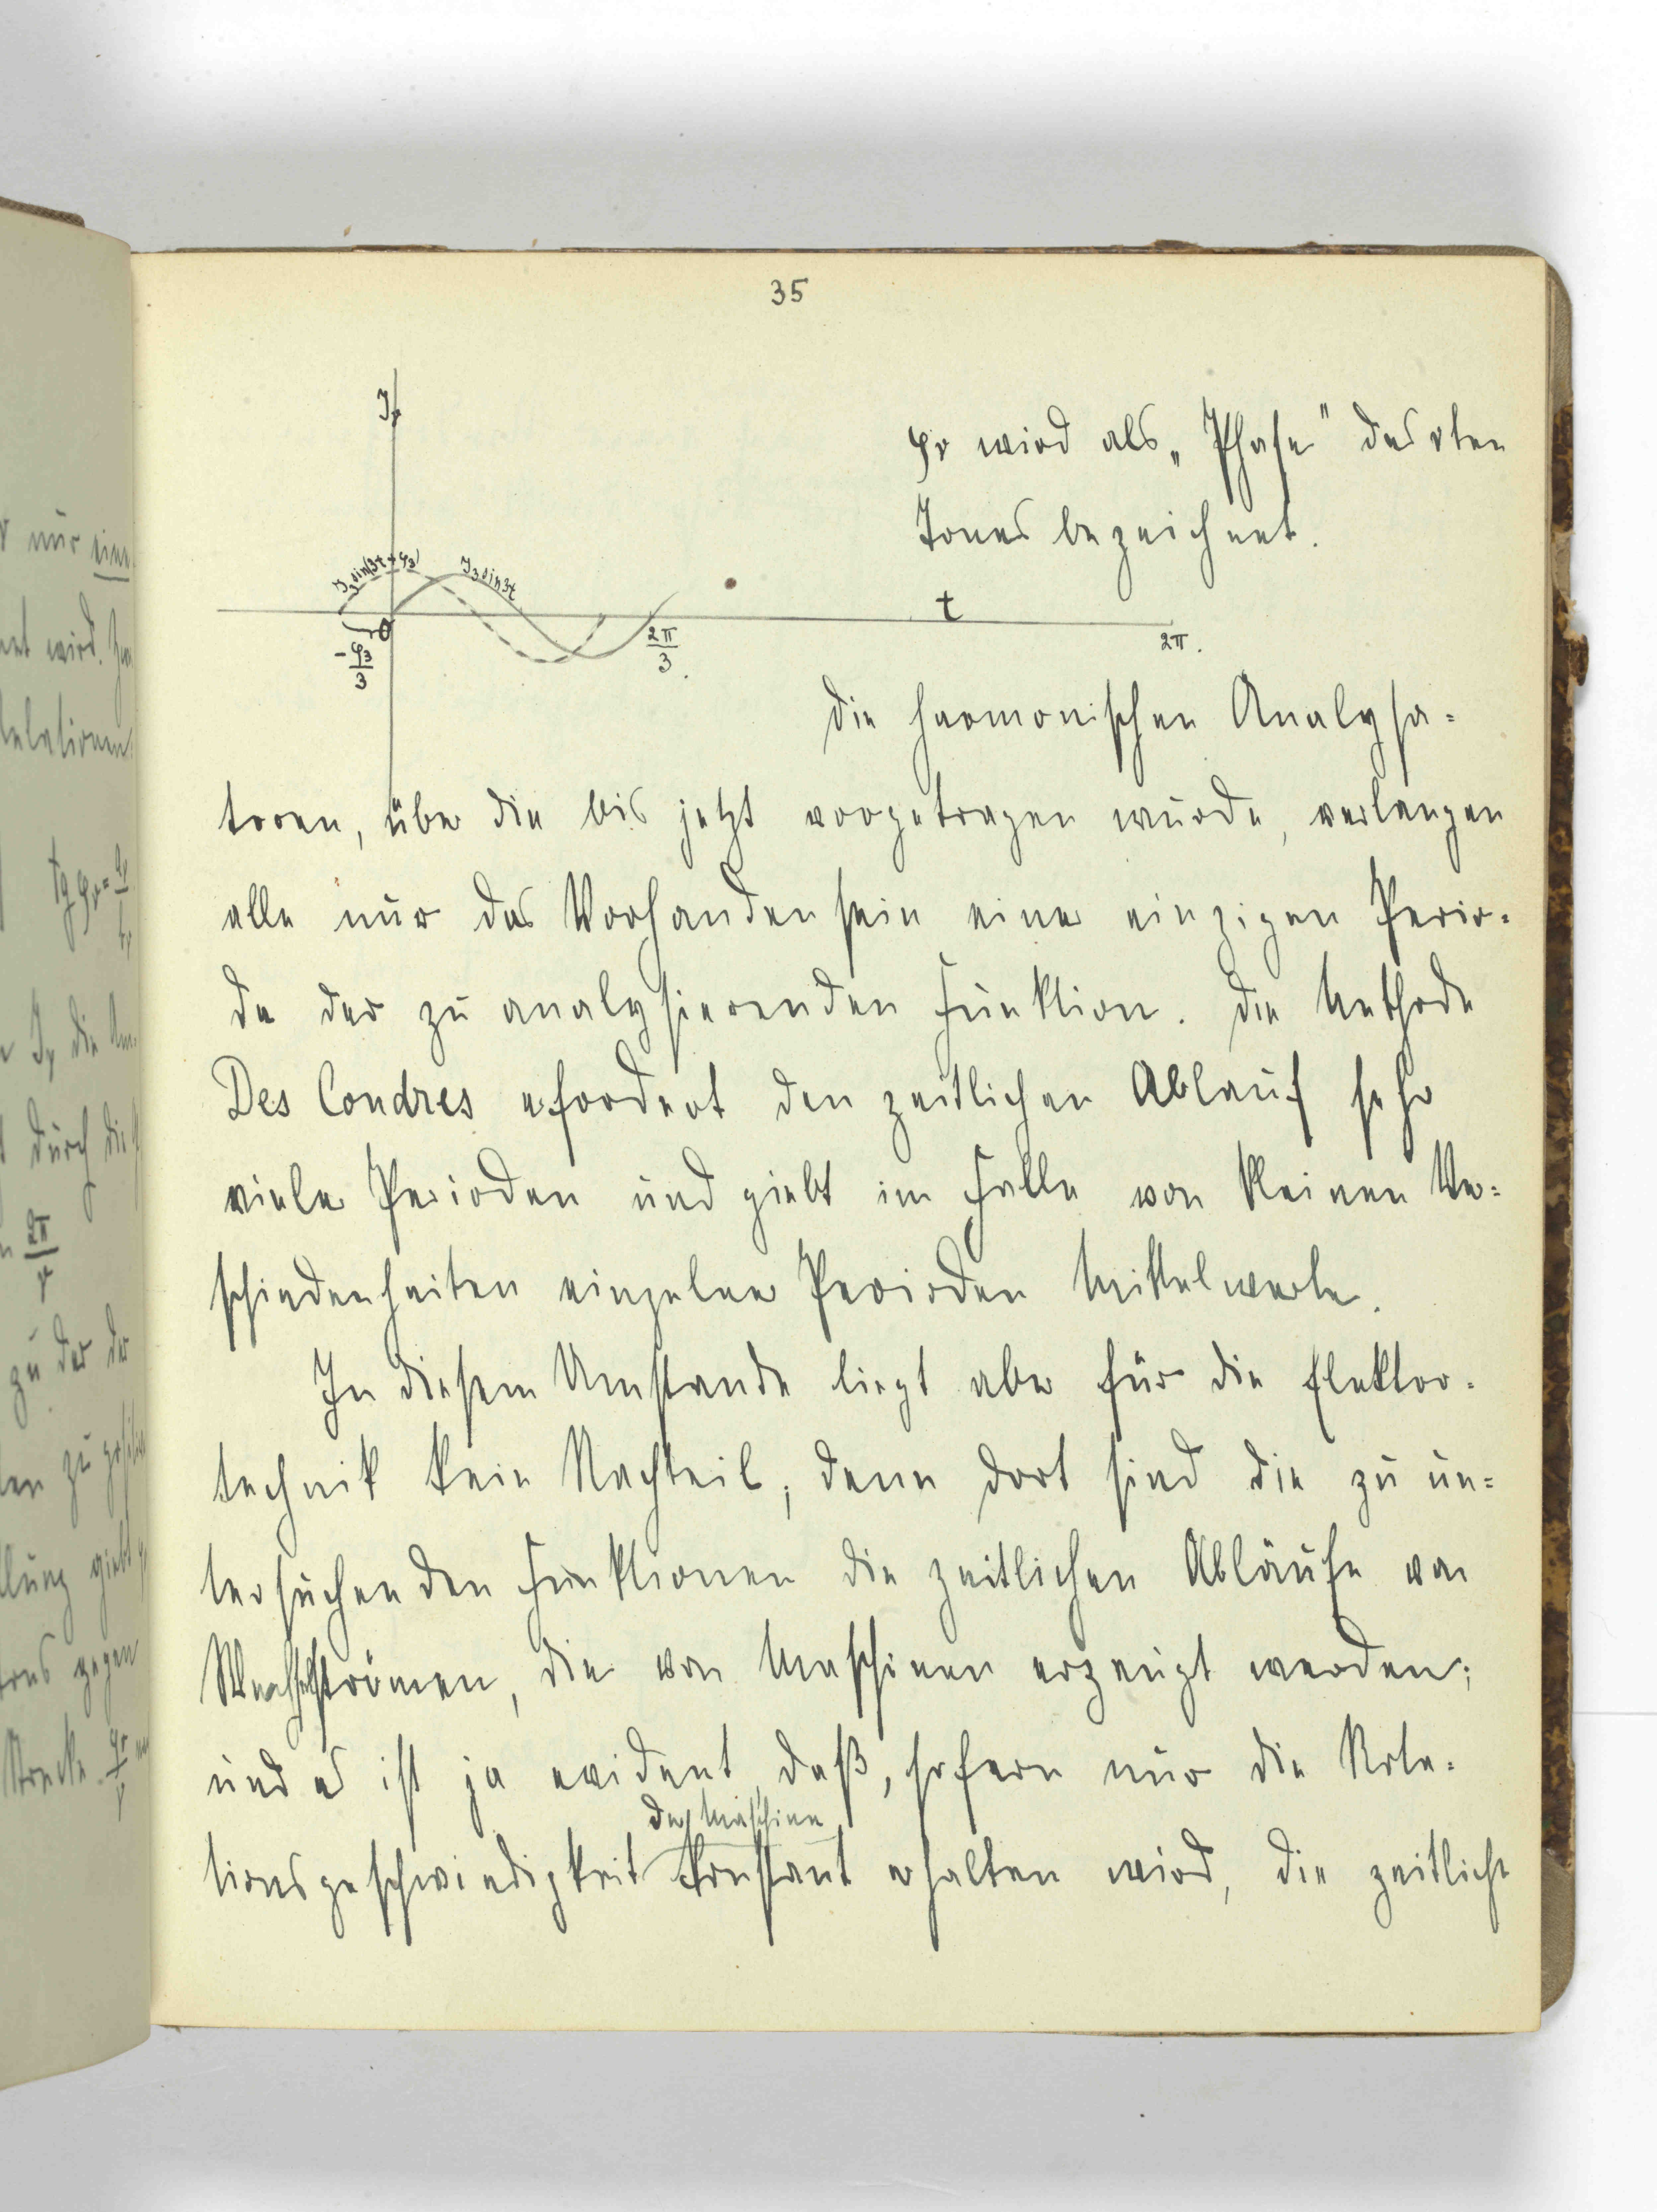 35
J
φν wird als „Phase" des νten
Tones bezeichnet.
J₃ sin(3t+φ₃)
J₃ sin 3t
t
0
-φ₃/3
2π/3
2π.
Die harmonischen Analysa=
toren, über die bis jetzt vorgetragen wurde, verlangen
alle nur das Vorhandensein einer einzigen Perio=
de der zu analysierenden Funktion. Die Methode
Des Condres erfordert den zeitlichen Ablauf sehr
vieler Perioden und giebt im Falle von kleinen Ver=
schiedenheiten einzelner Perioden Mittelwerte.
In diesem Umstande liegt aber für die Elektro=
technik kein Nachteil; denn dort sind die zu un=
tersuchenden Funktionen die zeitlichen Abläufe von
Wechselströmen, die von Maschinen erzeugt werden;
und es ist ja evident, daß, sofern nur die Rota=
der Maschine
tionsgeschwindigkeit konstant erhalten wird, die zeitliche
nur eine
wird.
tg φν =
Jν die
durch die
2π/ν
zu der der
zu
giebt
gegen
Strecke φν/ν